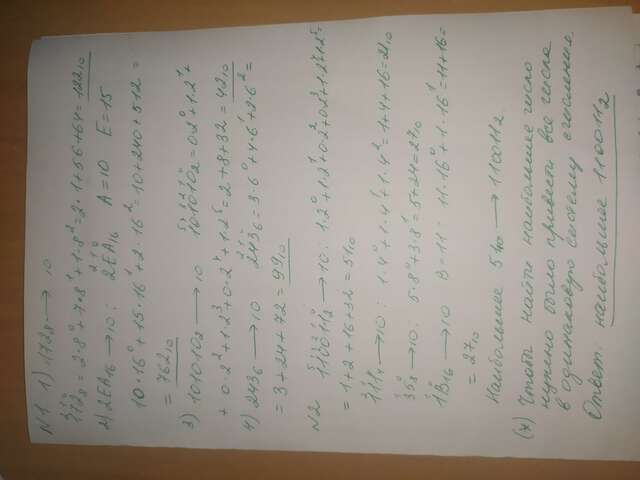 N1 1) 172₈ → 10
²¹⁰
172₈ = 2·8⁰ + 7·8¹ + 1·8² = 2·1 + 56 + 64 = 122₁₀
2) 2EA₁₆ → 10: ²¹⁰2EA₁₆ A = 10 E = 15
10·16⁰ + 15·16¹ + 2·16² = 10 + 240 + 512 =
= 762₁₀
3) 101010₂ → 10 ⁵⁴³²¹⁰101010₂ = 0·2⁰ + 1·2¹ +
+ 0·2² + 1·2³ + 0·2⁴ + 1·2⁵ = 2 + 8 + 32 = 42₁₀
4) 243₆ → 10 ²¹⁰243₆ = 3·6⁰ + 4·6¹ + 2·6² =
= 3 + 24 + 72 = 99₁₀
N2 ⁵⁴³²¹⁰110011₂ → 10: 1·2⁰ + 1·2¹ + 0·2² + 0·2³ + 1·2⁴ + 1·2⁵ =
= 1 + 2 + 16 + 32 = 51₁₀
²¹⁰111₄ → 10: 1·4⁰ + 1·4¹ + 1·4² = 1 + 4 + 16 = 21₁₀
¹⁰35₈ → 10: 5·8⁰ + 3·8¹ = 5 + 24 = 27₁₀
¹⁰1B₁₆ → 10 B = 11: 11·16⁰ + 1·16¹ = 11 + 16 =
= 27₁₀
Наибольшее 51₁₀ → 110011₂
(*) Чтобы найти наибольшее число
нужно было привести все числа
в одинаковую систему счисления.
Ответ: наибольшее 110011₂